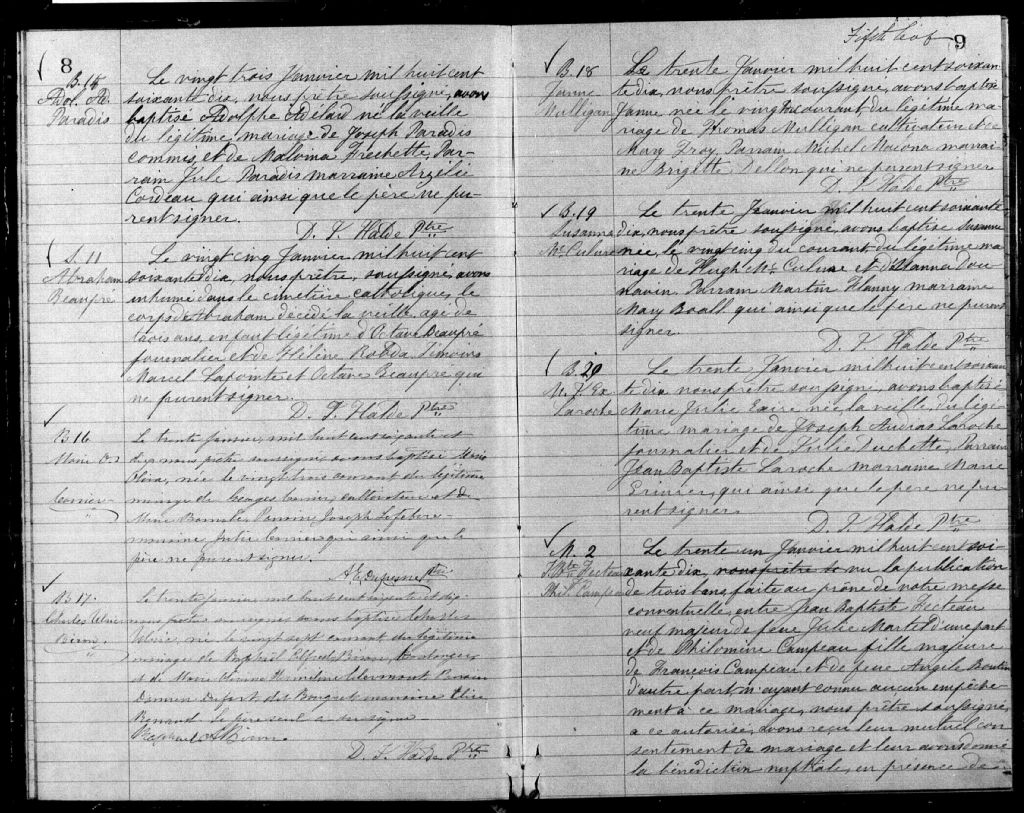 8
B. 15
Adol. Ad.
Paradis
Le vingt trois Janvier mil huit cent
soixante dix, nous prêtre soussigné, avons
baptisé Adolphe Adélard né la veille
du légitime mariage de Joseph Paradis
commis, et de Malvina Frechette, Par-
rain Jule Paradis marraine Arzélie
Cordeau qui ainsi que le père ne pu-
rent signer.
D. V. Halde Ptre
S. 11
Abraham
Beaupré
Le vingt cinq Janvier mil huit cent
soixante dix, nous prêtre, soussigné, avons
inhumé dans le cimetière catholique, le
corps de Abraham décédé la veille, age de
trois ans, enfant légitime d'Octave Beaupré
journalier et de Hélène Robda. Témoins
Marcel Lapointe et Octave Beaupré qui
ne purent signer.
D. V. Halde Ptre
B 16
Marie
Le trente Janvier, mil huit cent soixante et
dix nous prêtre soussigné, avons baptisé Marie
née le vingt trois courant du légitime
mariage de Georges cultivateur et de
Marie Parrain Joseph Lefebvre
marraine, Julie qui ainsi que le
père ne purent signer.
A. E. Dufresne Ptre
B 17.
Charles
Biron
Le trente Janvier, mil huit cent soixante et dix
nous prêtre soussigné avons baptisé Charles
né le vingt sept courant du légitime
mariage de Raphael Alfred Biron, Boulanger
et de Marie Hermeline Clermont Parrain
Damien Dufort dit Bouquet marraine Elise
Renaud le père seul a su signer
Raphael A Biron
D. V. Halde Ptre
Fifth leaf 9
B. 18
Janne
Mulligan
Le trente Janvier mil huit cent soixan-
te dix, nous prêtre soussigné, avons baptisé
Janne née le vingt courant, du légitime ma-
riage de Thomas Mulligan cultivateur et de
Mary Froy, Parrain Michel Macona marrai-
ne Brigitte Dellon qui ne purent signer
D. V. Halde Ptre
B. 19
Susanna
Mc Culune
Le trente Janvier mil huit cent soixante
dix, nous prêtre soussigné, avons baptisé Susanna
née, le vingt cinq du courant du légitime ma-
riage de Hugh Mc Culune et d'Hanna Dou-
navin Parrain Martin Flanny marraine
Mary Boall qui ainsi que le père ne purent
signer.
D. V. Halde Ptre
B. 20
M. J. Ex.
Laroche
Le trente Janvier mil huit cent soixan-
te dix nous prêtre soussigné, avons baptisé
Marie Julie née la veille, du légi-
time mariage de Joseph Andras Laroche
journalier et de Julie Duchette, Parrain
Jean Baptiste Laroche marraine Marie
qui ainsi que le père ne pu-
rent signer
D. V. Halde Ptre
M. 2
J. Bte Fecteau
Phil. Campeau
Le trente un Janvier mil huit cent soi-
xante dix, nous prêtre so vu la publication
de trois bans, faite au prône de notre messe
conventuelle, entre Jean Baptiste Fecteau
veuf majeur de feue Julie Martel d'une part
et de Philomine Campeau fille majeure
de François Campeau et de feue Angèle Boutin
d'autre part, n'ayant connu aucun empêche-
ment à ce mariage, nous prêtre soussigné,
à ce autorisé, avons reçu leur mutuel con-
sentement de mariage et leur avons donné
la bénédiction nuptiale, en présence de